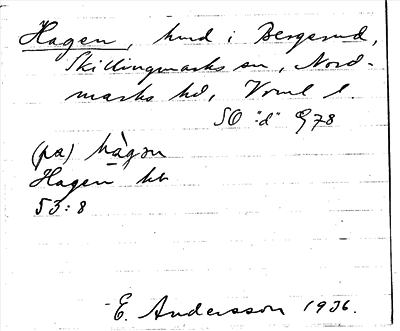 Hagen, hmd i Bergerud,
Skillingmarks sn, Nord-
marks hd, Vrml l.
SO "d" G78
(pa) hàgən
Hagen kb
53:8
E. Andersson 1936.